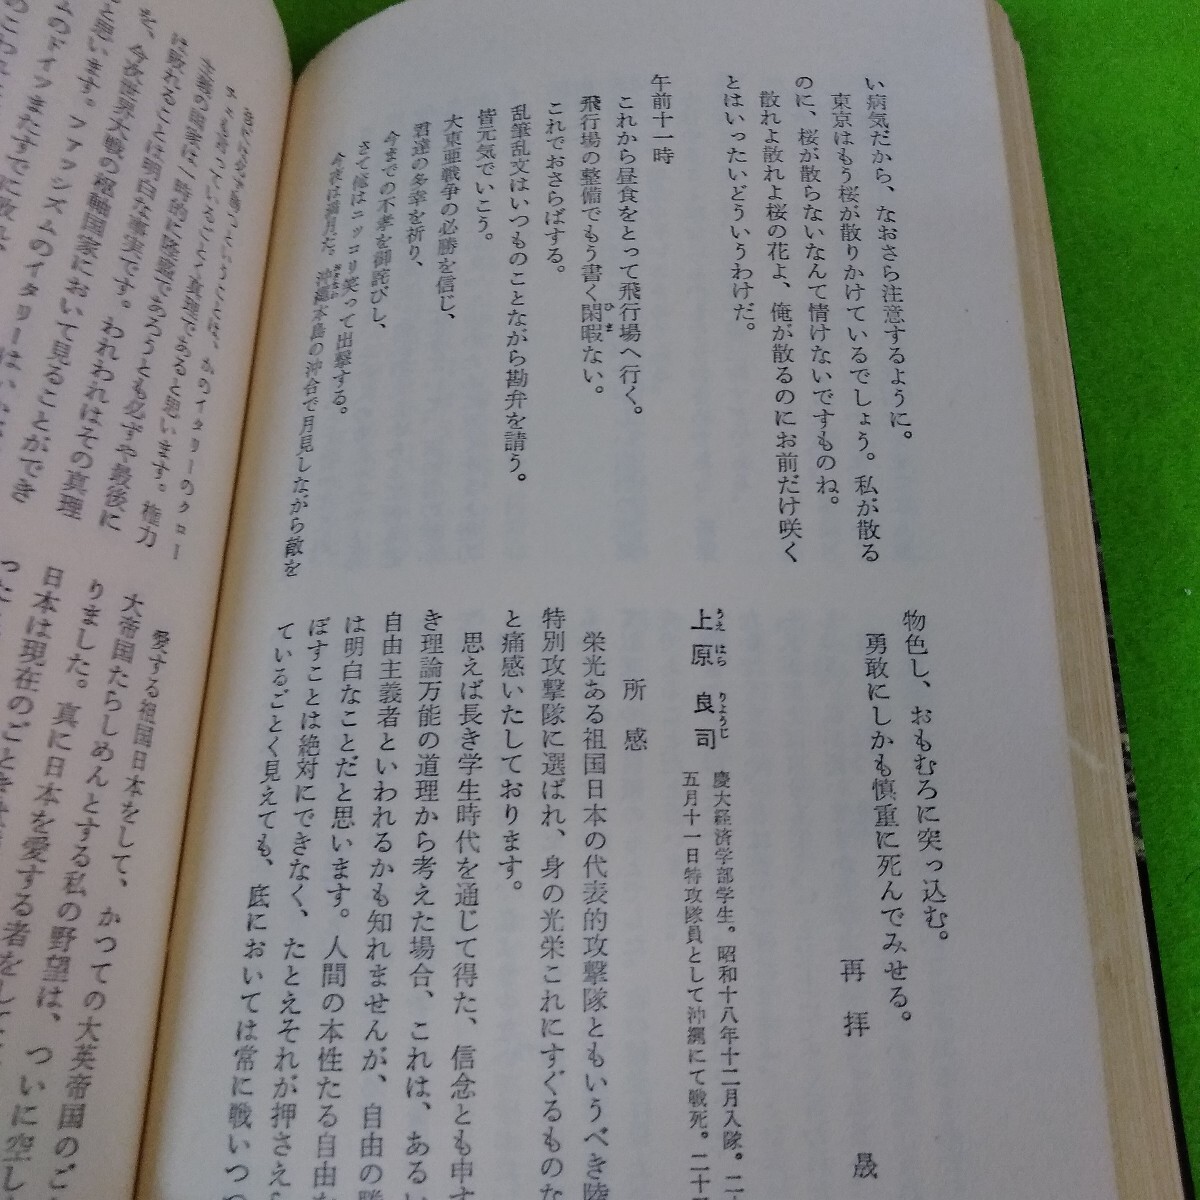 い病気だから、なおさら注意するように。
東京はもう桜が散りかけているでしょう。私が散る
のに、桜が散らないなんて情けないですものね。
散れよ散れよ桜の花よ、俺が散るのにお前だけ咲く
とはいったいどういうわけだ。
午前十一時
これから昼食をとって飛行場へ行く。
飛行場の整備でもう書く閑暇ない。
ひま
これでおさらばする。
乱筆乱文はいつものことながら勘弁を請う。
皆元気でいこう。
大東亜戦争の必勝を信じ、
君達の多幸を祈り、
今までの不孝を御詫びし、
さて俺はニッコリ笑って出撃する。
今夜は満月だ。沖縄本島の沖合で月見しながら敵を
おきなわ
物色し、おもむろに突っ込む。
勇敢にしかも慎重に死んでみせる。
再拝
晟
上原良司
うえはらりょうじ
慶大経済学部学生。昭和十八年十二月入隊。二十
五月十一日特攻隊員として沖縄にて戦死。二十
所感
栄光ある祖国日本の代表的攻撃隊ともいうべき陸
特別攻撃隊に選ばれ、身の光栄これにすぐるものな
と痛感いたしております。
思えば長き学生時代を通じて得た、信念とも申す
き理論万能の道理から考えた場合、これは、あるい
自由主義者といわれるかも知れませんが、自由の勝
は明白なことだと思います。人間の本性たる自由な
ぼすことは絶対にできなく、たとえそれが押さえ
ているごとく見えても、底においては常に戦いつつ
ということは、かのイタリーのクロー
チェも言っているごとく真理であると思います。権力
主義の国家は一時的に隆盛であろうとも必ずや最後に
は敗れることは明白な事実です。われわれはその真理
を、今次世界大戦の枢軸国家において見ることができ
と思います。ファッシズムのイタリーは
のドイツまたすでに敗れ
愛する祖国日本をして、かつての大英帝国のご
大帝国たらしめんとする私の野望は、ついに空し
りました。真に日本を愛する者をして
日本は現在のごとき